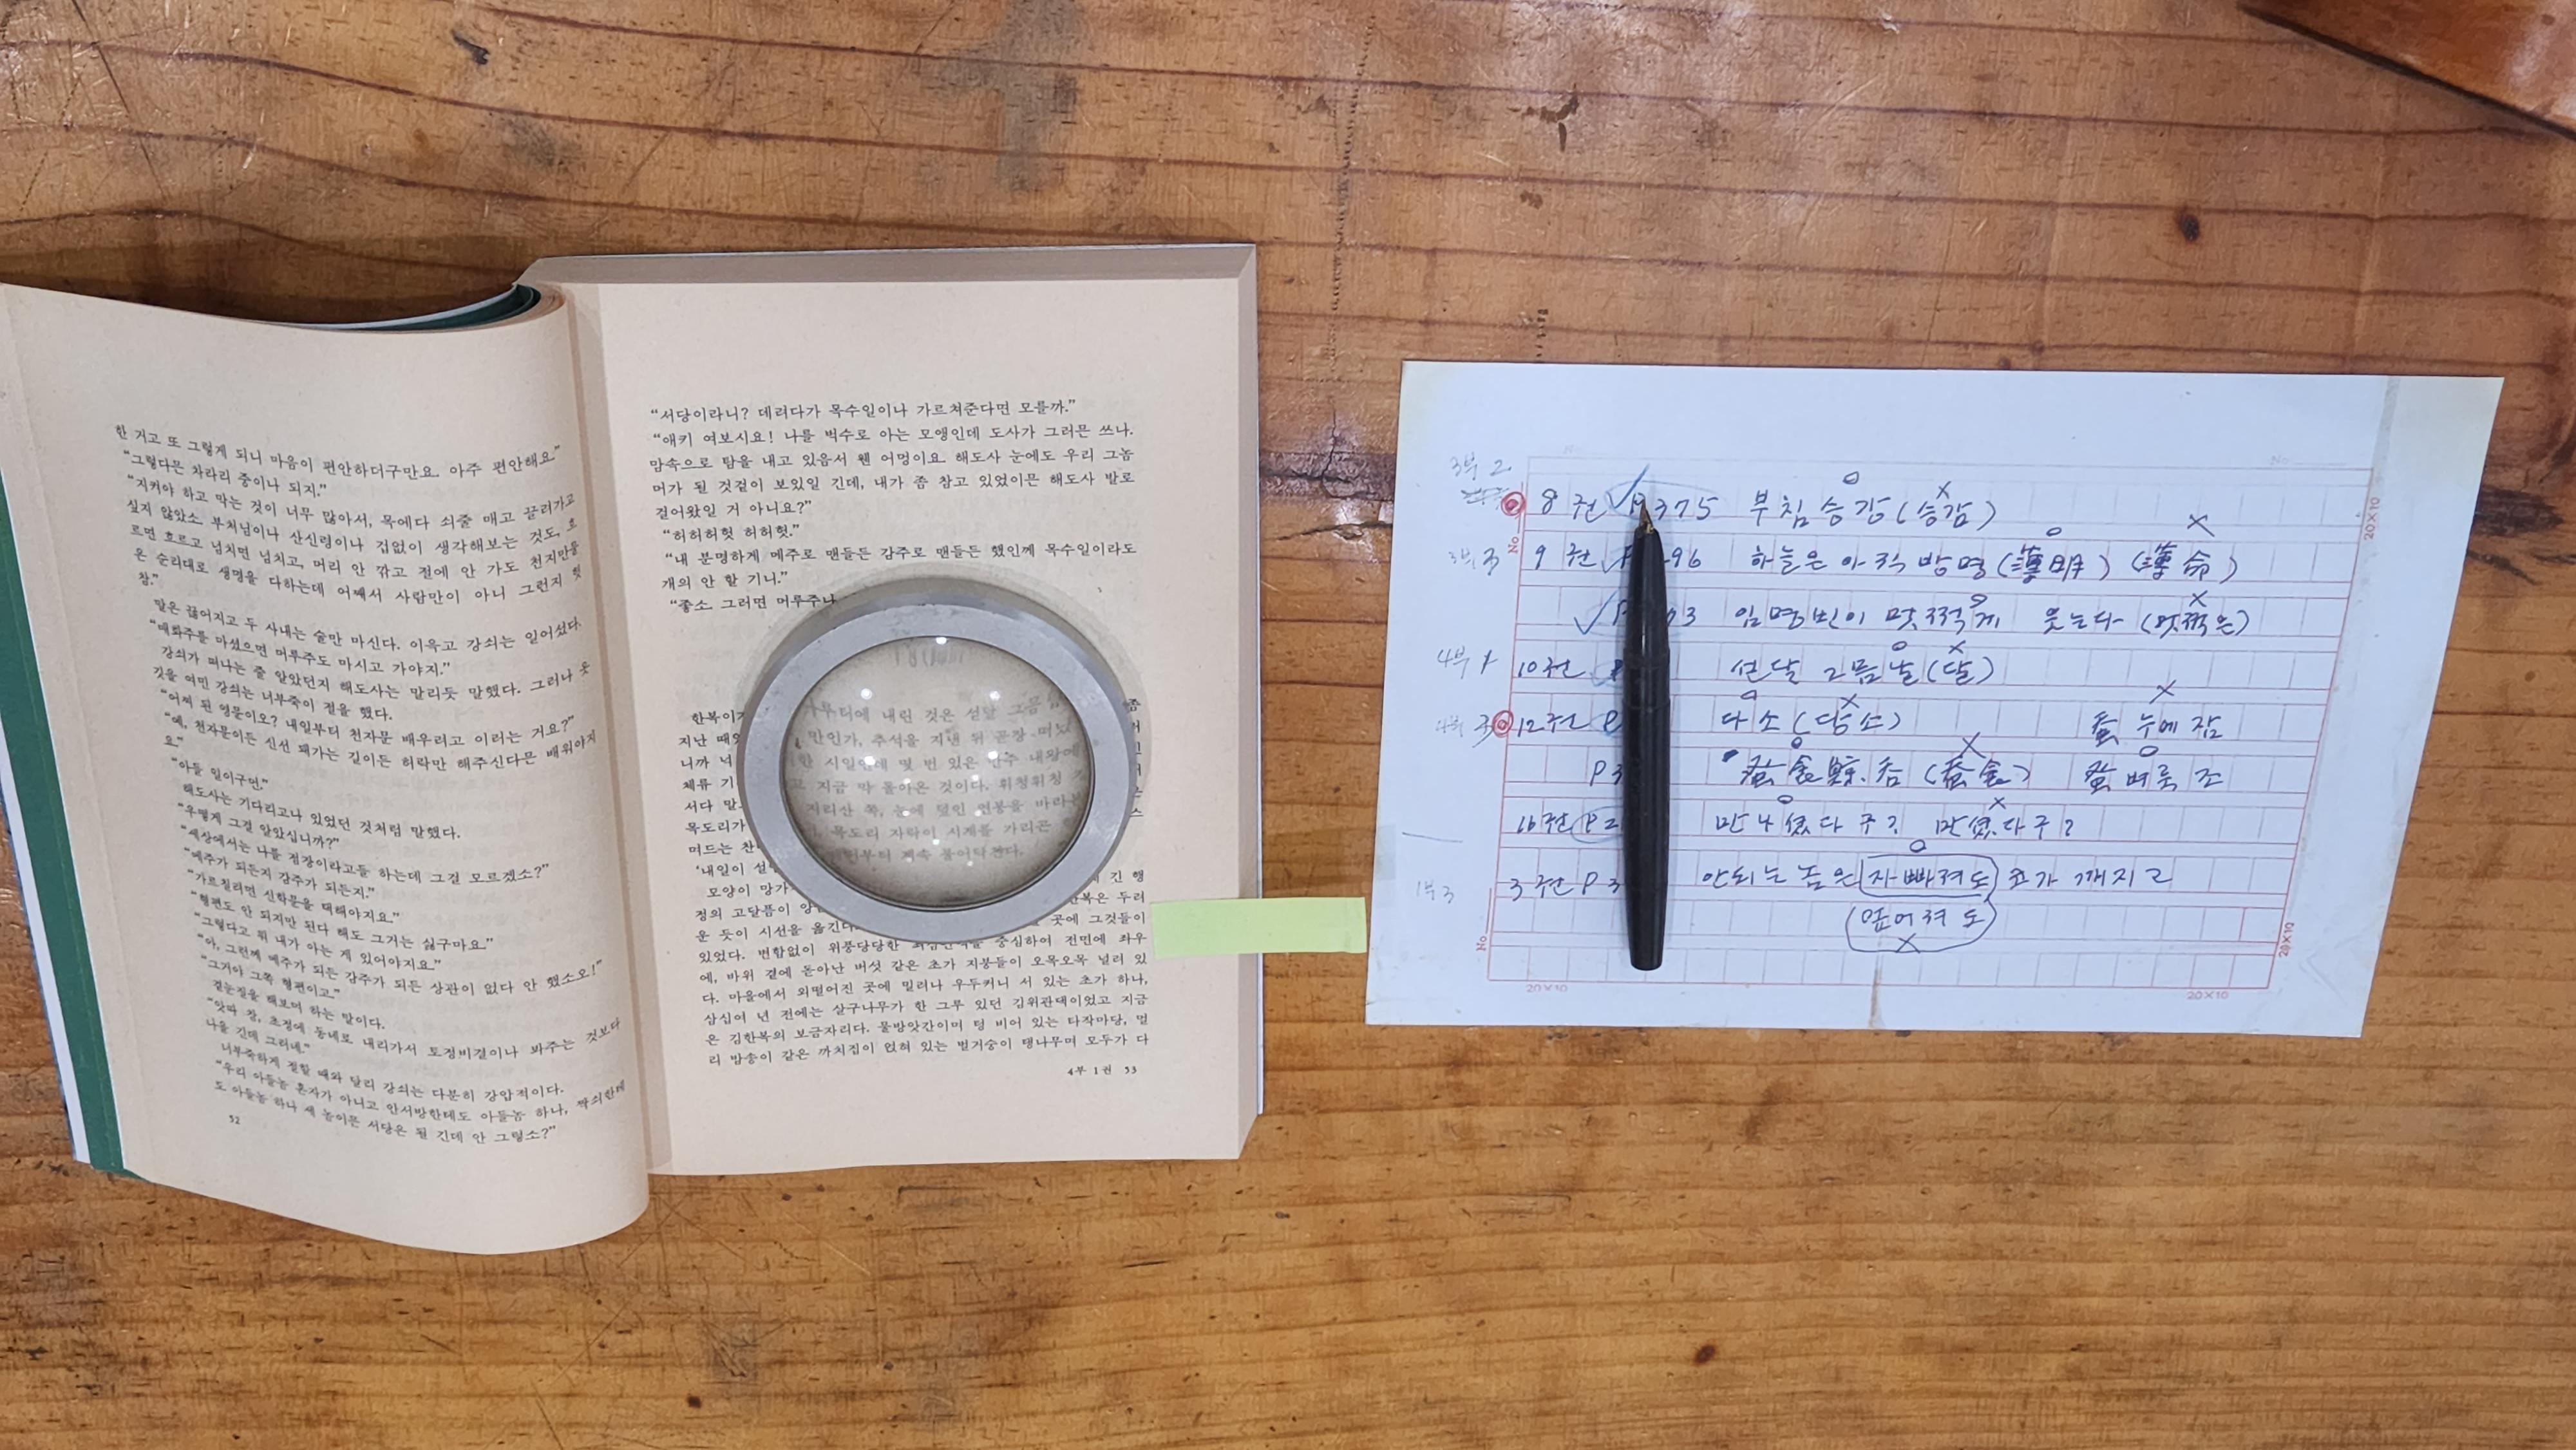 한 거고 또 그렇게 되니 마음이 편안하더구만요. 아주 편안해요.”
“그렇다믄 차라리 중이나 되지.”
“지켜야 하고 막는 것이 너무 많아서, 목에다 쇠줄 매고 끌려가고
싶지 않았소. 부처님이나 산신령이나 겁없이 생각해보는 것도, 흐
르면 흐르고 넘치면 넘치고, 머리 안 깎고 절에 안 가도 천지만물
은 순리대로 생명을 다하는데 어째서 사람만이 아니 그런지 헛
참.”
말은 끊어지고 두 사내는 술만 마신다. 이윽고 강쇠는 일어섰다.
“매화주를 마셨으면 머루주도 마시고 가야지.”
강쇠가 떠나는 줄 알았던지 해도사는 말리듯 말했다. 그러나 옷
깃을 여민 강쇠는 너부죽이 절을 했다.
“어찌 된 영문이오? 내일부터 천자문 배우려고 이러는 거요?”
“예, 천자문이든 신선 돼가는 길이든 허락만 해주신다믄 배워야지
요.”
“아들 일이구먼.”
해도사는 기다리고나 있었던 것처럼 말했다.
“우떻게 그걸 알았십니까?”
“세상에서는 나를 점쟁이라고들 하는데 그걸 모르겠소?”
“메주가 되든지 감주가 되든지.”
“가르칠려면 신학문을 택해야지요.”
“형편도 안 되지만 된다 해도 그거는 싫구마요.”
“그렇다고 뭐 내가 아는 게 있어야지요.”
“아, 그런께 메주가 되든 감주가 되든 상관이 없다 안 했소오!”
“그거야 그쪽 형편이고.”
곁눈질을 해보며 하는 말이다.
“앗따 참, 초정에 동네로 내리가서 토정비결이나 봐주는 것보다
나을 긴데 그러네.”
너부죽하게 절할 때와 달리 강쇠는 다분히 강압적이다.
“우리 아들놈 혼자가 아니고 안서방한테도 아들놈 하나, 짝쇠한테
도 아들놈 하나 세 놈이믄 서당은 될 긴데 안 그렇소?”
52
“서당이라니? 데려다가 목수일이나 가르쳐준다면 모를까.”
“애키 여보시요! 나를 벅수로 아는 모앵인데 도사가 그러믄 쓰나.
맘속으로 탐을 내고 있음서 웬 어멍이요. 해도사 눈에도 우리 그놈
머가 될 것겉이 보있일 긴데, 내가 좀 참고 있었이믄 해도사 발로
걸어왔일 거 아니요?”
“허허허헛 허허헛.”
“내 분명하게 메주로 맨들든 감주로 맨들든 했인께 목수일이라도
개의 안 할 기니.”
“좋소. 그러면 머루주나
한복이가 나루터에 내린 것은 섣달 그믐
지난 때 만인가, 추석을 지낸 뒤 곧장 떠났
니까 넉 한 시일인데 몇 번 있은 만주 내왕에
체류 기 고 지금 막 돌아온 것이다. 휘청휘청
서다 말 지리산 쪽, 눈에 덮인 연봉을 바라
목도리가 목도리 자락이 시계를 가리곤
며드는 찬 부터 계속 불어닥쳤다.
‘내일이 설
모양이 망가 긴 행
정의 고달픔이 한복은 두러
운 듯이 시선을 옮긴다. 곳에 그것들이
있었다. 변함없이 위풍당당한 최참판댁을 중심하여 전면에 좌우
에, 바위 곁에 돋아난 버섯 같은 초가 지붕들이 오목오목 널려 있
다. 마을에서 외떨어진 곳에 밀려나 우두커니 서 있는 초가 하나,
삼십여 년 전에는 살구나무가 한 그루 있던 김위관댁이었고 지금
은 김한복의 보금자리다. 물방앗간이며 텅 비어 있는 타작마당, 멀
리 밤송이 같은 까치집이 얹혀 있는 벌거숭이 탱나무며 모두가 다
4부 1권 53
3부 2
8권 P375 부침승강(승감)
3부 3 9권 96 하늘은 아직 방명(薄明) (薄命)
임명빈이 멋쩍게 웃는다 (멋쩍은)
4부 1 10권 섣달 그믐날(달)
4부 3 12권 P 다소(담소) 蚕 누에 잠
P3 (蚕食) 蚤 벼룩 조
16권 P2 만나셨다구? 만셨다구?
1부 3 3권 P3 안되는 놈은 자빠져도 코가 깨지고
(엎어져도)
No
20×10
20×10
No
20×10
20×10